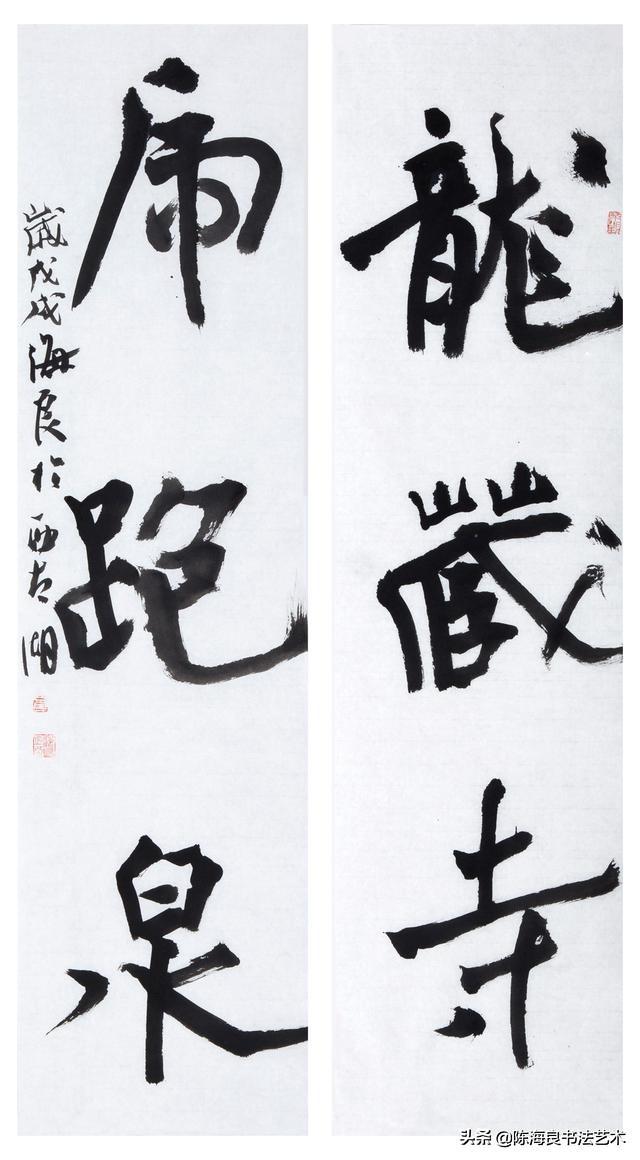 龍藏寺
虎跑泉
歲戊戌海良於西太湖
头条 @陈海良书法艺术